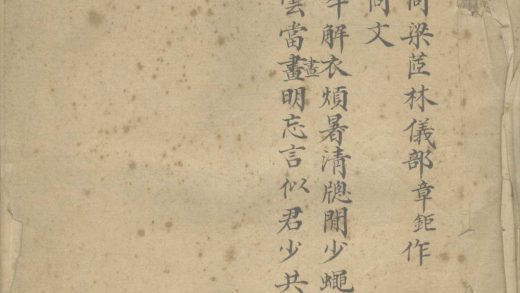 梁茝林儀部章鉅作
同文
解衣煩暑清牕閒少蠅
雲當晝畫明忘言似君少共